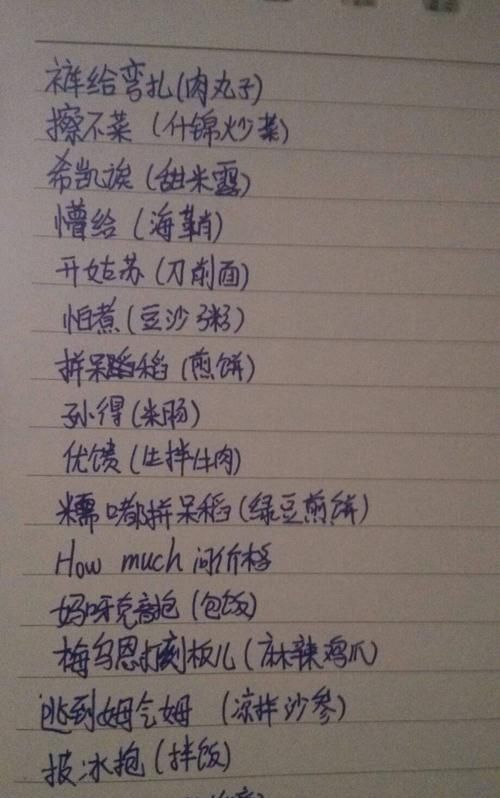 裤给弯扎(肉丸子)
擦不菜 (什锦炒菜)
希凯诶 (甜米露)
懵给 (海鞘)
开姑苏 (刀削面)
怕煮 (豆沙粥)
拼呆稻 (煎饼)
孙得 (米肠)
优馈 (生拌牛肉)
糯嘟拼呆稻 (绿豆煎饼)
How much 问价格
妈呀克抱 (包饭)
梅乌恩打刻板儿 (麻辣鸡爪)
逃到姆气姆 (凉拌沙参)
披冰抱 (拌饭)